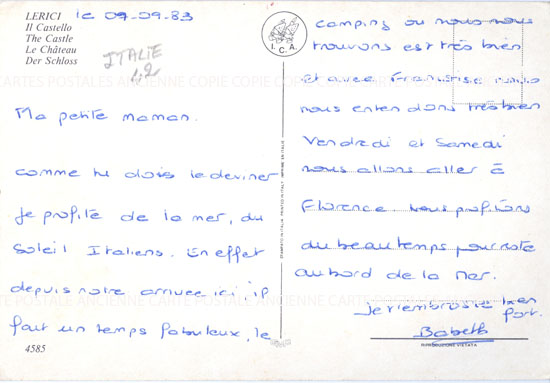 LERICI
Il Castello
The Castle
Le Château
Der Schloss
le 07-09-83
ITALIE
I.C.A.
CARTES POSTALES ANCIENNE COPIE COPIE COPIE
Ma petite maman.
comme tu dois le deviner
je profite de la mer, du
soleil Italiens. En effet
depuis notre arrivée ici il
fait un temps fabuleux, le
4585
STAMPATO IN ITALIA PRINTED IN ITALY IMPRIMÉ EN ITALIE
camping ou nous nous
trouvons est très bien
et avec Francoise nous
nous entendons très bien
Vendredi et Samedi
nous allons aller à
Florence. nous profitons
du beau temps pour rester
au bord de la mer.
Je t'embrasse bien
fort.
Babeth
RIPRODUZIONE VIETATA